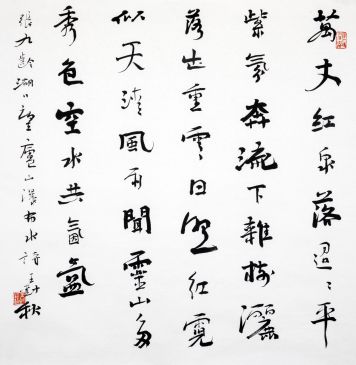 萬丈紅泉落迢〻半
紫氛奔流下雜樹灑
落出重雲日照紅霓
似天清風雨聞靈山多
秀色空水共氤氲
張九齡湖口望廬山瀑布水詩 秋